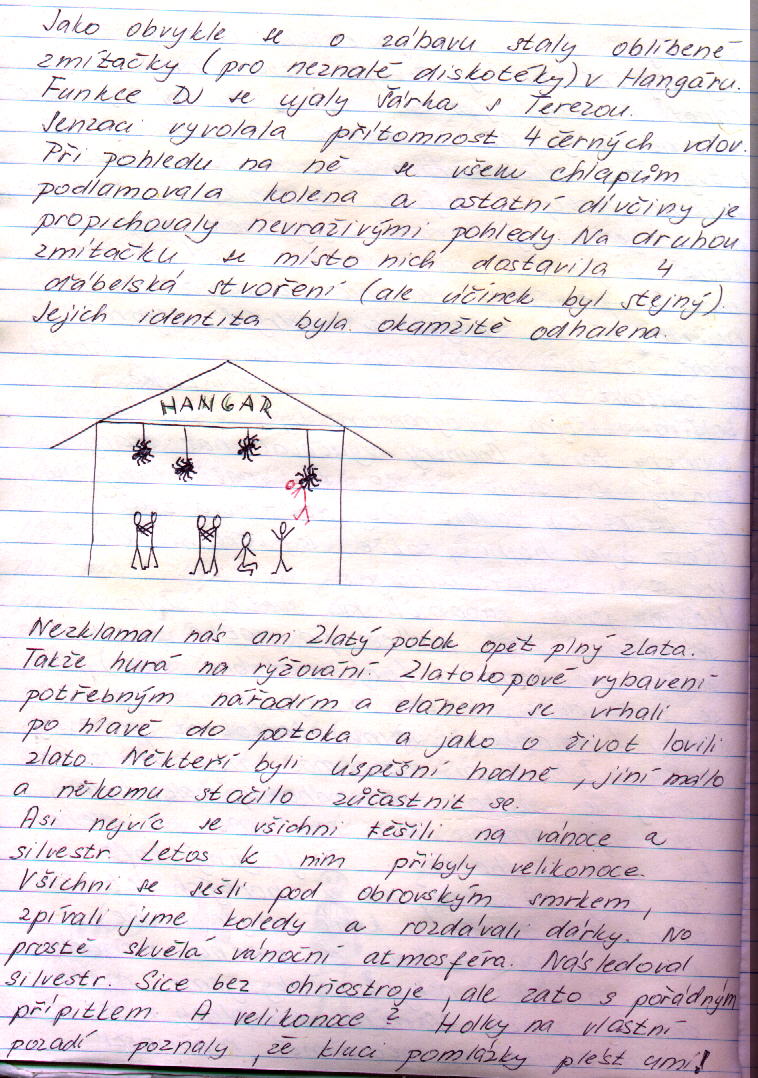 Jako obvykle se o zábavu staly oblíbené
zmítačky (pro neznalé diskotéky) v Hangáru.
Funkce DJ se ujaly Šárka s Terezou.
Senzaci vyvolala přítomnost 4 černých vdov.
Při pohledu na ně se všem chlapům
podlamovala kolena a ostatní dívčiny je
propichovaly nevraživými pohledy. Na druhou
zmítačku se místo nich dostavila 4
ďábelská stvoření (ale účinek byl stejný).
Jejich identita byla okamžitě odhalena.
HANGAR
Nezklamal nás ani Zlatý potok opět plný zlata.
Takže hurá na rýžování. Zlatokopové vybavení
potřebným nářadím a elánem se vrhali
po hlavě do potoka a jako o život lovili
zlato. Někteří byli úspěšní hodně, jiní málo
a někomu stačilo zúčastnit se.
Asi nejvíc se všichni těšili na vánoce a
silvestr. Letos k nim přibyly velikonoce.
Všichni se sešli pod obrovským smrkem,
zpívali jsme koledy a rozdávali dárky. No
prostě skvělá vánoční atmosféra. Následoval
silvestr. Sice bez ohňostroje, ale zato s pořádným
přípitkem. A velikonoce? Holky na vlastní
pozadí poznaly, že kluci pomlázky plést umí!